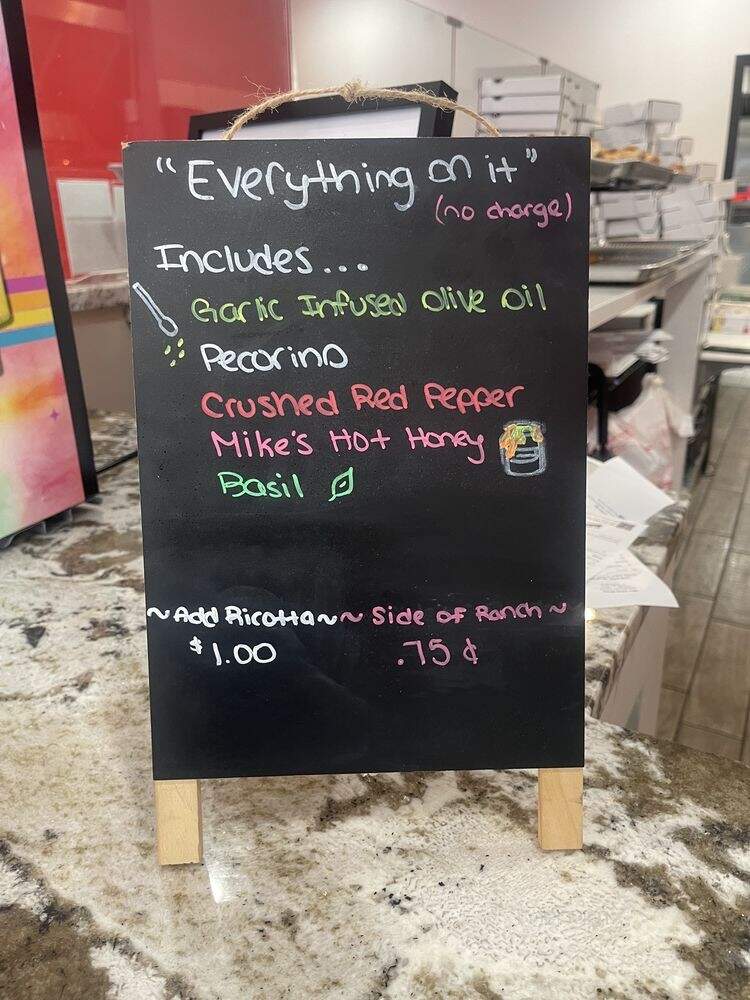 "Everything on it"
(no charge)
Includes...
Garlic Infused Olive Oil
Pecorino
Crushed Red Pepper
Mike's Hot Honey
Basil
~Add Ricotta~ ~ Side of Ranch ~
$1.00 .75¢